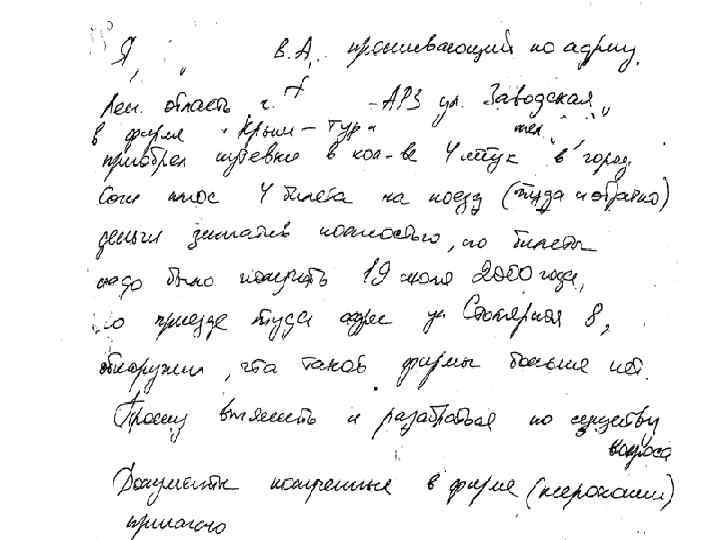 Я, В.А. проживающий по адресу
Лен. область г. -АРЗ ул. Заводская,
в фирме "Крым-Тур" тел.
приобрел путевки в кол-ве 4 штук в город
Сочи плюс 4 билета на поезд (туда и обратно)
деньги заплатив полностью, но билеты
надо было получить 19 июля 2000 года,
по приезде туда адрес ул. Столярная 8,
обнаружил, что такой фирмы больше нет.
Прошу выяснить и разобраться по существу
вопроса
Документы полученные в фирме (ксерокопии)
прилагаю